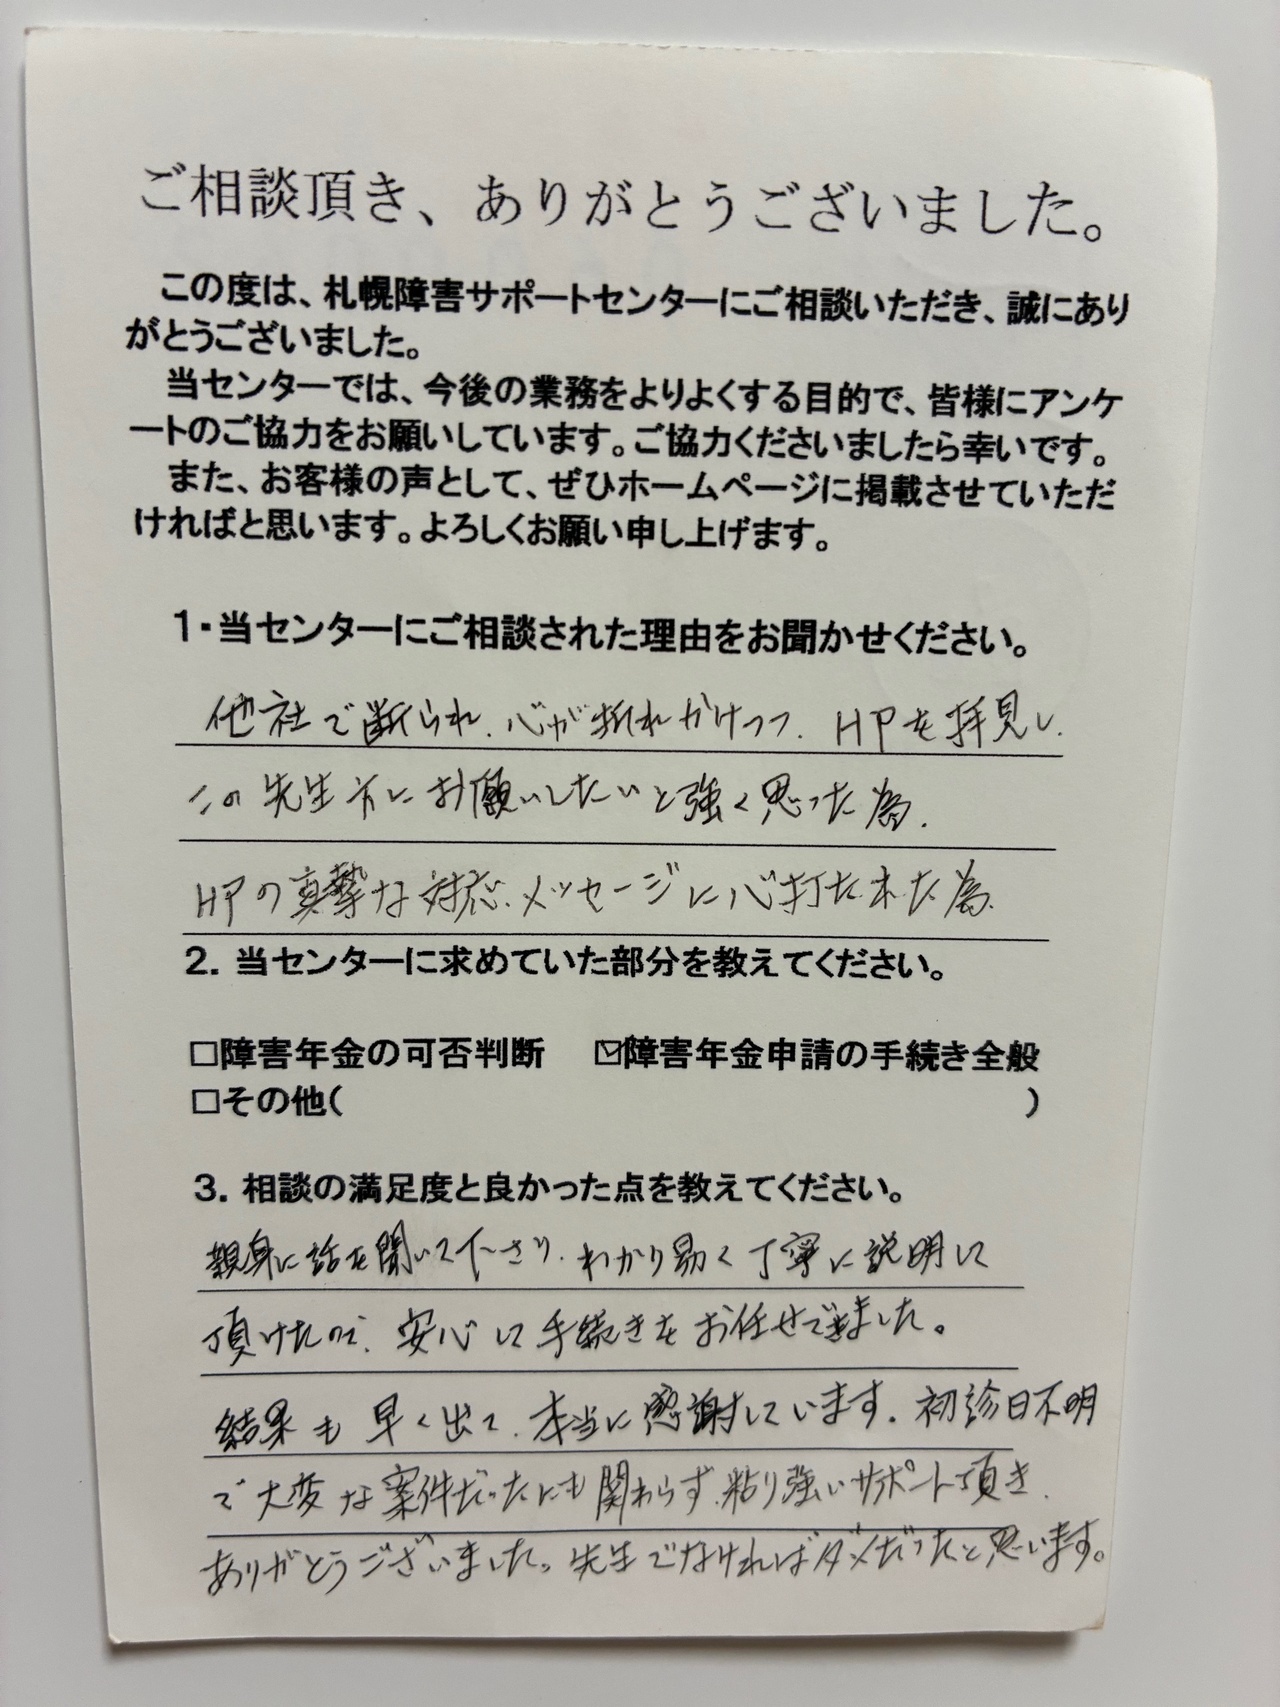 ご相談頂き、ありがとうございました。
この度は、札幌障害サポートセンターにご相談いただき、誠にあり
がとうございました。
当センターでは、今後の業務をよりよくする目的で、皆様にアンケ
ートのご協力をお願いしています。ご協力くださいましたら幸いです。
また、お客様の声として、ぜひホームページに掲載させていただ
ければと思います。よろしくお願い申し上げます。
1・当センターにご相談された理由をお聞かせください。
他社で断られ、心が折れかけつつ、HPを拝見し、
この先生方にお願いしたいと強く思った為。
HPの真摯な対応、メッセージに心打たれた為。
2. 当センターに求めていた部分を教えてください。
□障害年金の可否判断 ☑障害年金申請の手続き全般
□その他( )
3. 相談の満足度と良かった点を教えてください。
親身に話を聞いて下さり、わかり易く丁寧に説明して
頂けたので、安心して手続きをお任せできました。
結果も早く出て、本当に感謝しています。初診日不明
で大変な案件だったにも関わらず、粘り強いサポート頂き、
ありがとうございました。先生でなければダメだったと思います。